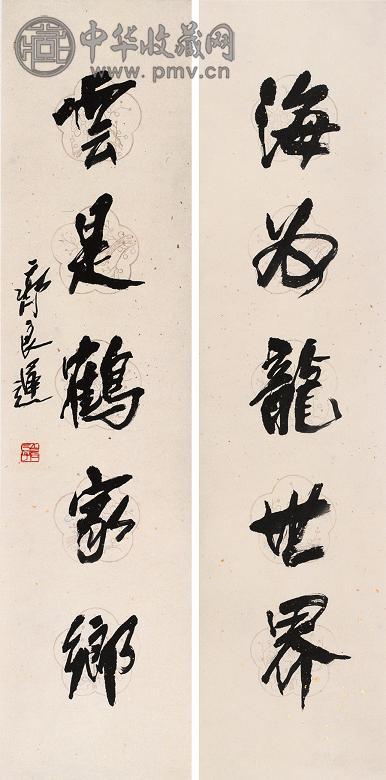 中华收藏网
www.pmv.cn
海为龍世界
雲是鶴家鄉
齊良遲